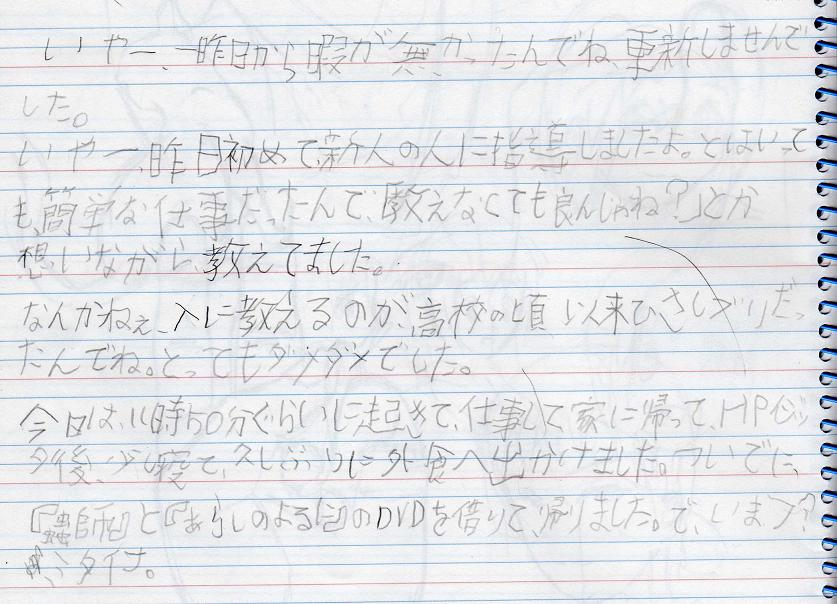 いやー、一昨日から暇が無かったんでね、更新しませんで
した。
いやー、昨日初めて、新人の人に指導しましたよ。とはいって
も、簡単な仕事だったんで、「教えなくても良んじゃね?」とか
想いながら、教えてました。
なんかねぇ、人に教えるのが、高校の頃以来ひさしぶりだっ
たんでね。とってもダメダメでした。
今日は、11時50分ぐらいに起きて、仕事して家に帰って、HP
後、少し寝て、久しぶりに外食へ出かけました。ついでに、
『蟲師』と『あらしのよるに』のDVDを借りて、帰りました。で、いまココ?
みタイナ。